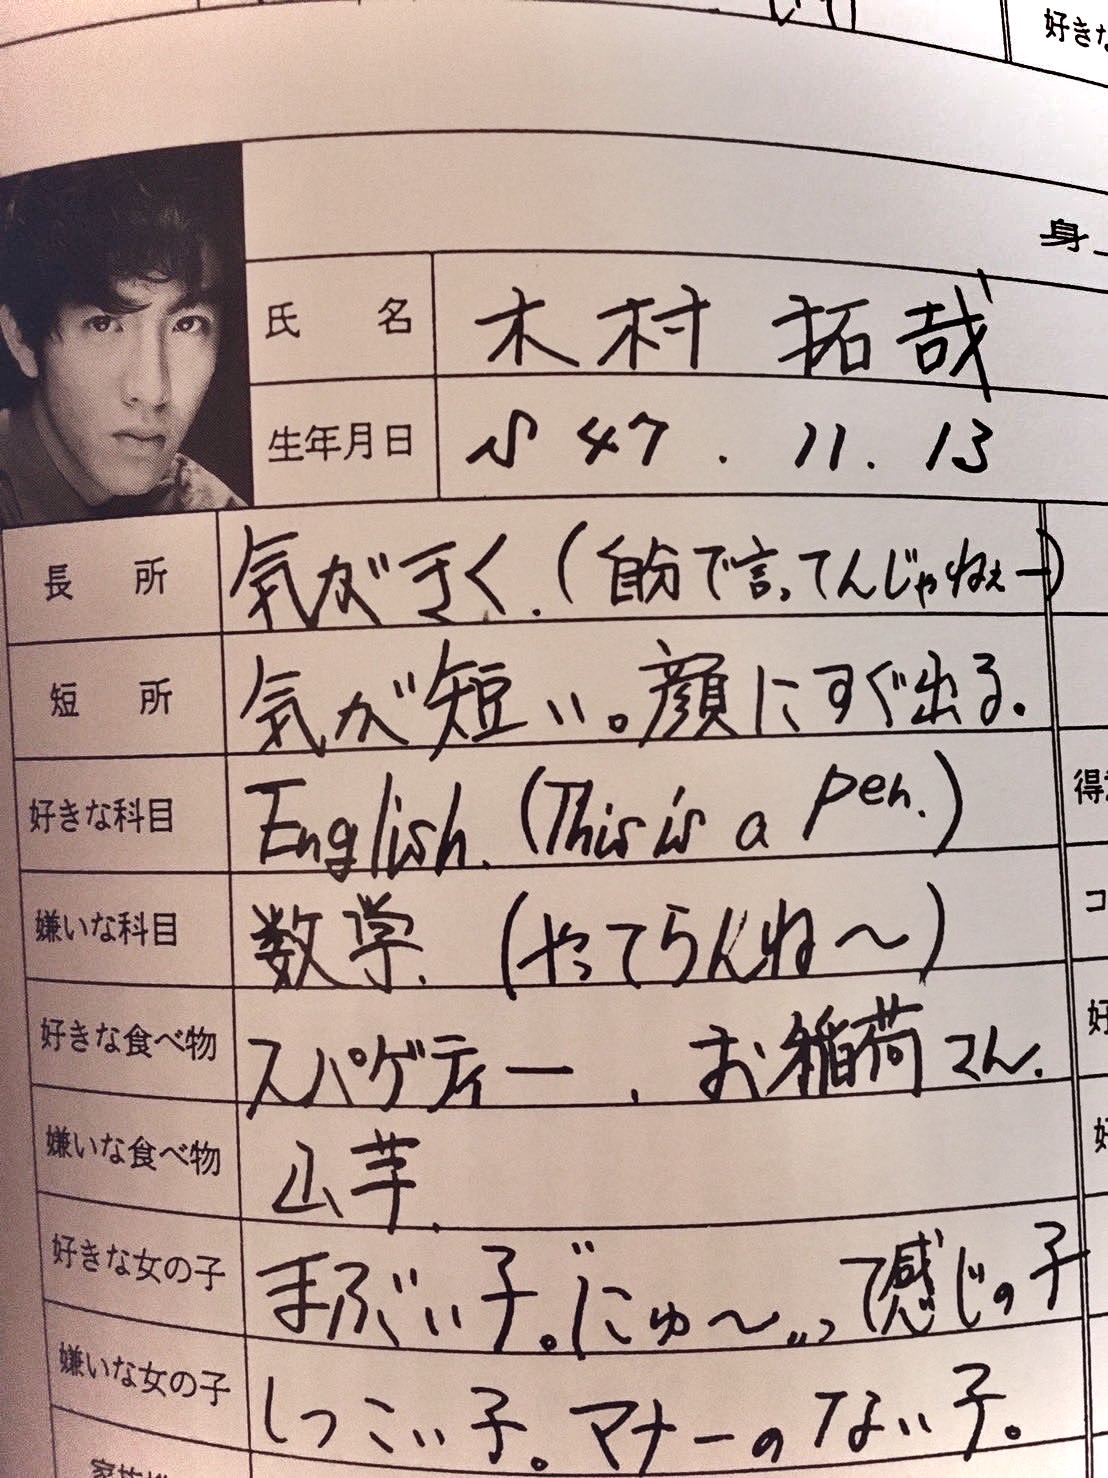 好きな
身上
氏 名 木村 拓哉
生年月日 S 47. 11. 13
長 所 気がきく.(自分で言ってんじゃねぇー)
短 所 気が短い。顔にすぐ出る。
好きな科目 English. (This is a pen.)
得意
嫌いな科目 数学. (やってらんね〜)
コ
好きな食べ物 スパゲティー . お稲荷さん.
好
嫌いな食べ物 山芋.
好
好きな女の子 まぶい子。にゅ〜って感じの子
嫌いな女の子 しつこい子。マナーのない子。